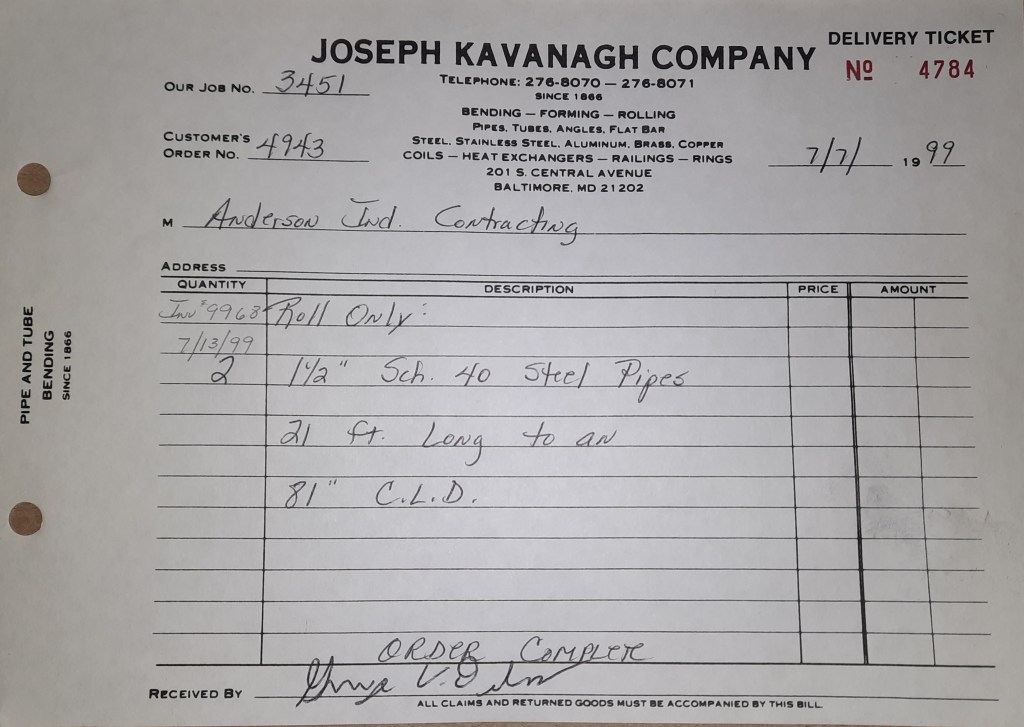 JOSEPH KAVANAGH COMPANY
DELIVERY TICKET
Nº 4784
TELEPHONE: 276-8070 — 276-8071
SINCE 1866
OUR JOB NO. 3451
BENDING — FORMING — ROLLING
PIPES, TUBES, ANGLES, FLAT BAR
STEEL, STAINLESS STEEL, ALUMINUM, BRASS, COPPER
COILS — HEAT EXCHANGERS — RAILINGS — RINGS
201 S. CENTRAL AVENUE
BALTIMORE, MD 21202
CUSTOMER'S
ORDER NO. 4943
7/7/ 1999
M Anderson Ind. Contracting
ADDRESS
QUANTITY DESCRIPTION PRICE AMOUNT
Inv # 9968 Roll Only:
7/13/99
2 1½" Sch. 40 Steel Pipes
21 ft. Long to an
81" C.L.D.
ORDER COMPLETE
RECEIVED BY
ALL CLAIMS AND RETURNED GOODS MUST BE ACCOMPANIED BY THIS BILL
PIPE AND TUBE
BENDING
SINCE 1866